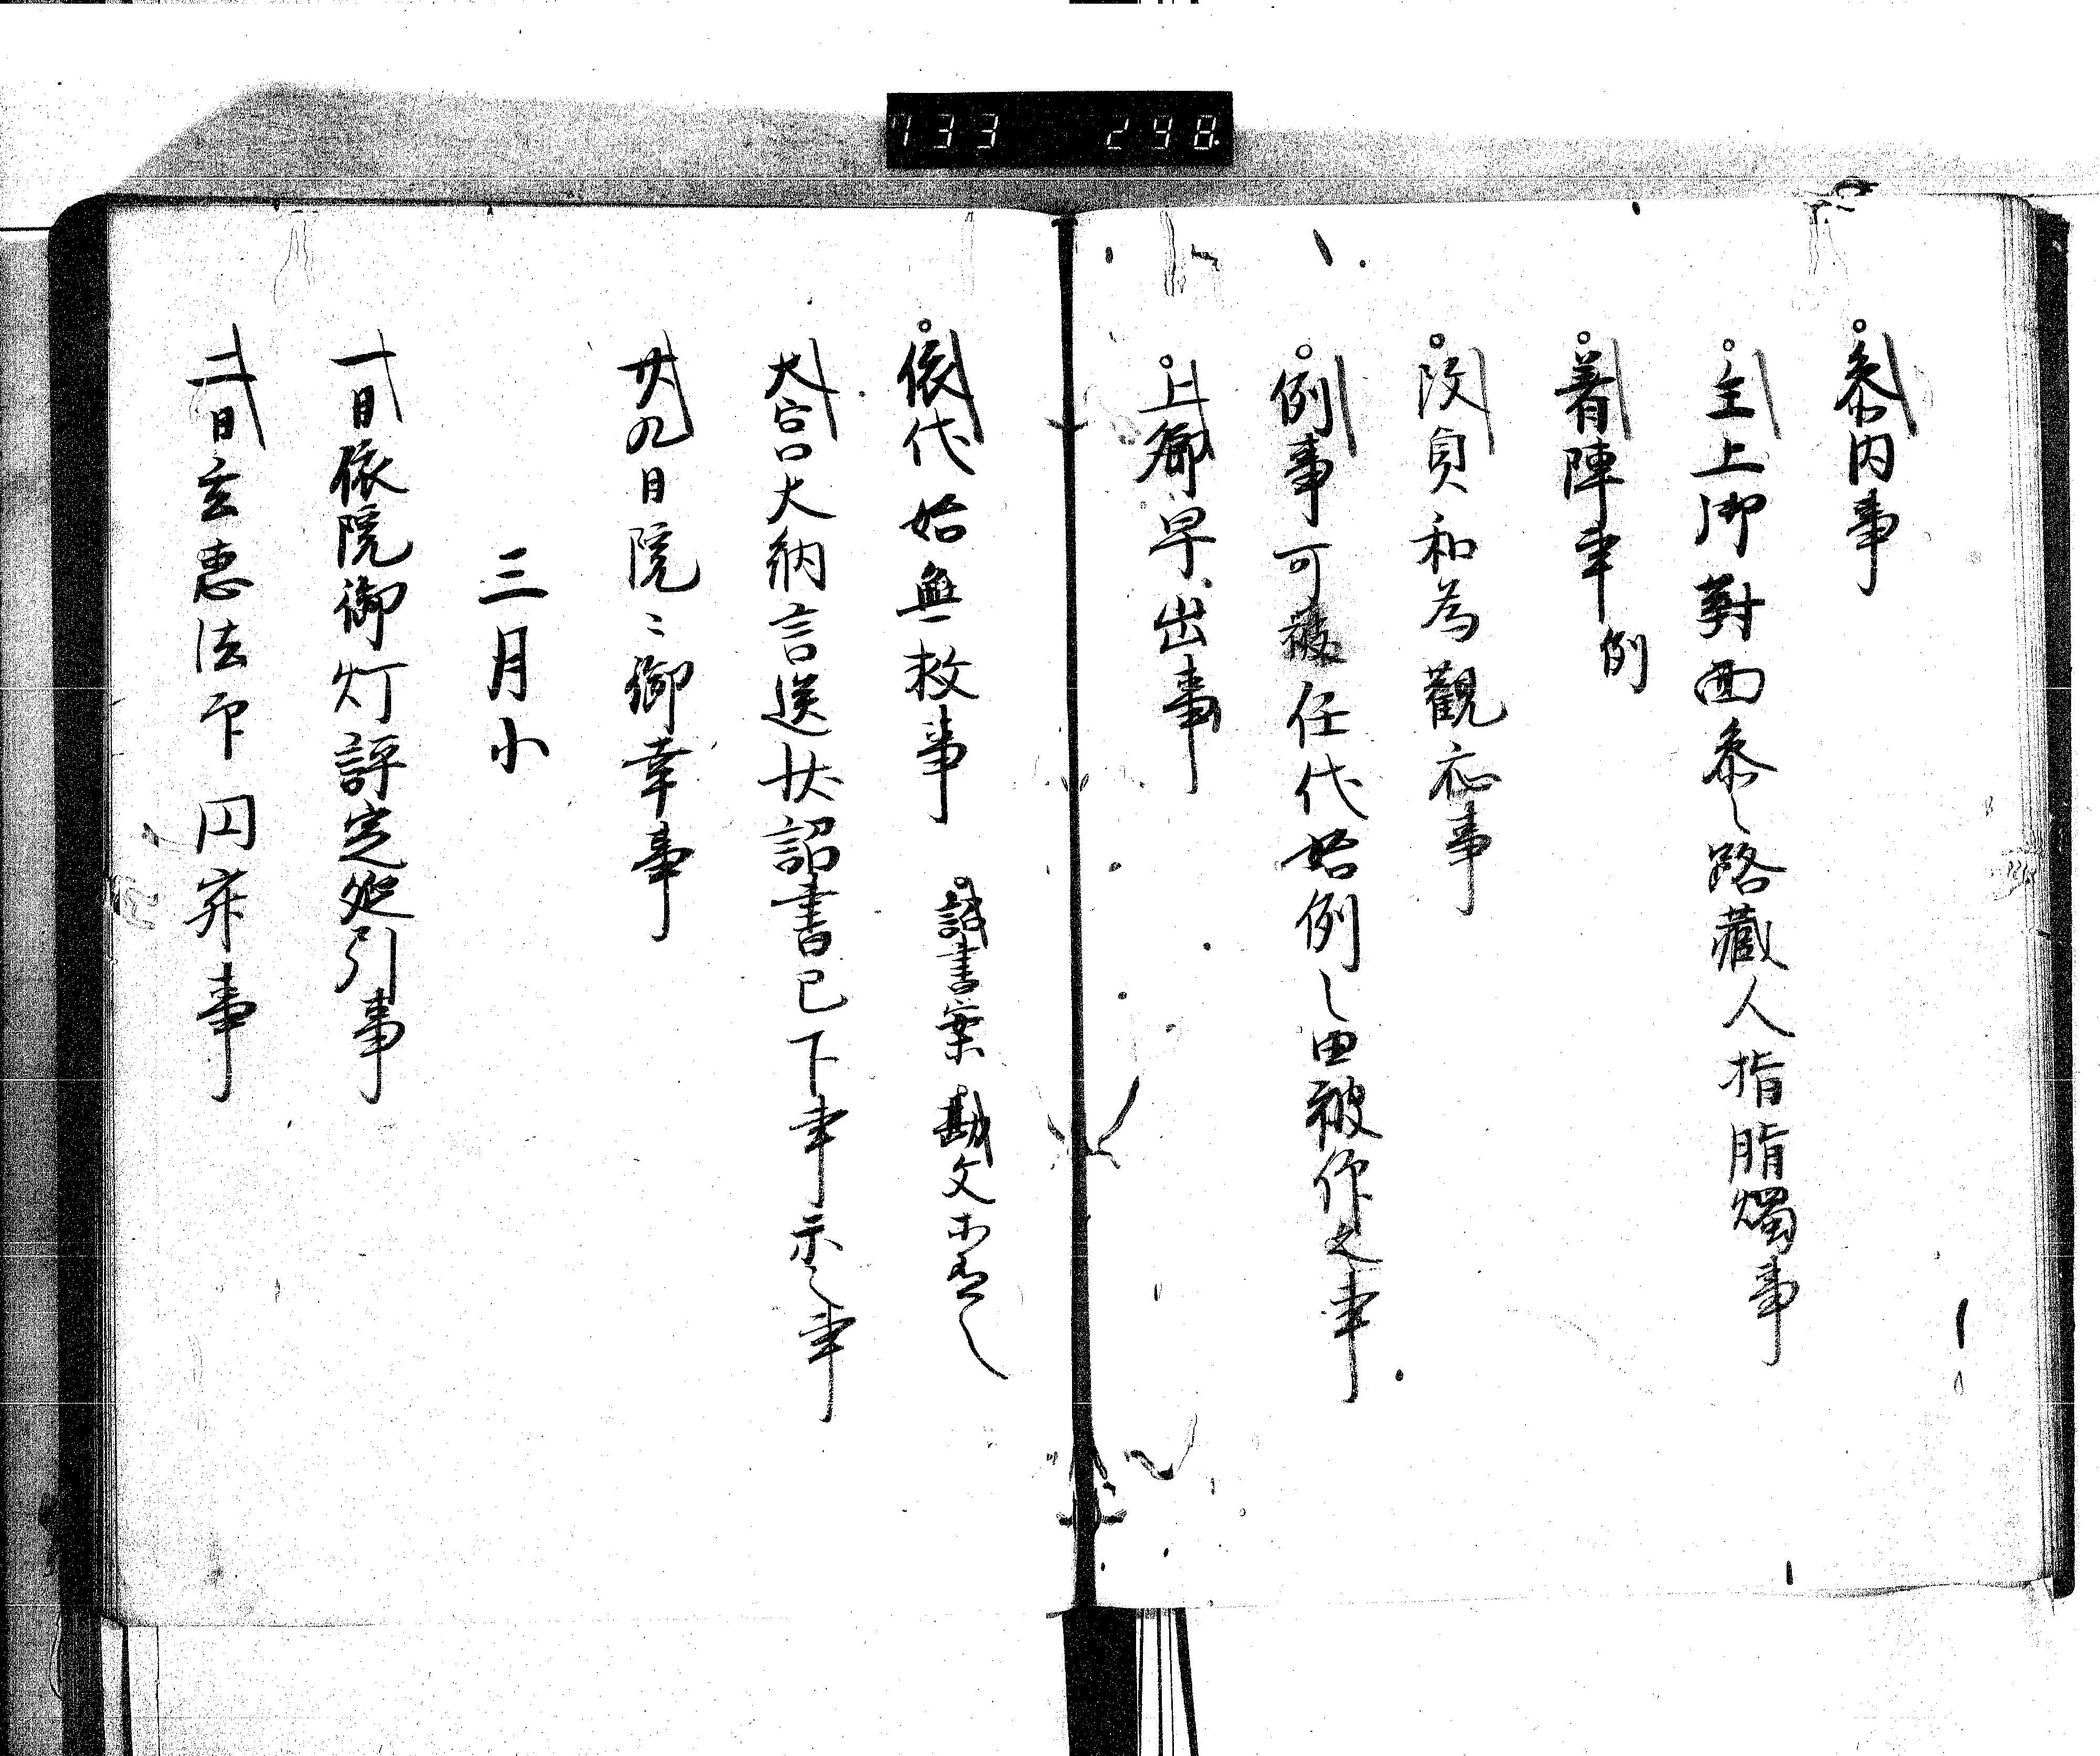 733 298
参内事
主上御對面参之路蔵人指脂燭事
着陣事 例
改貞和為觀応事
例事可被任代始例之由被仰之事
上卿早出事
依代始無赦事 詔書案勘文等有之
大宮大納言送状詔書已下事示之事
廿九日院々御幸事
三月小
一日依院御灯評定延引事
二日玄恵法印円寂事